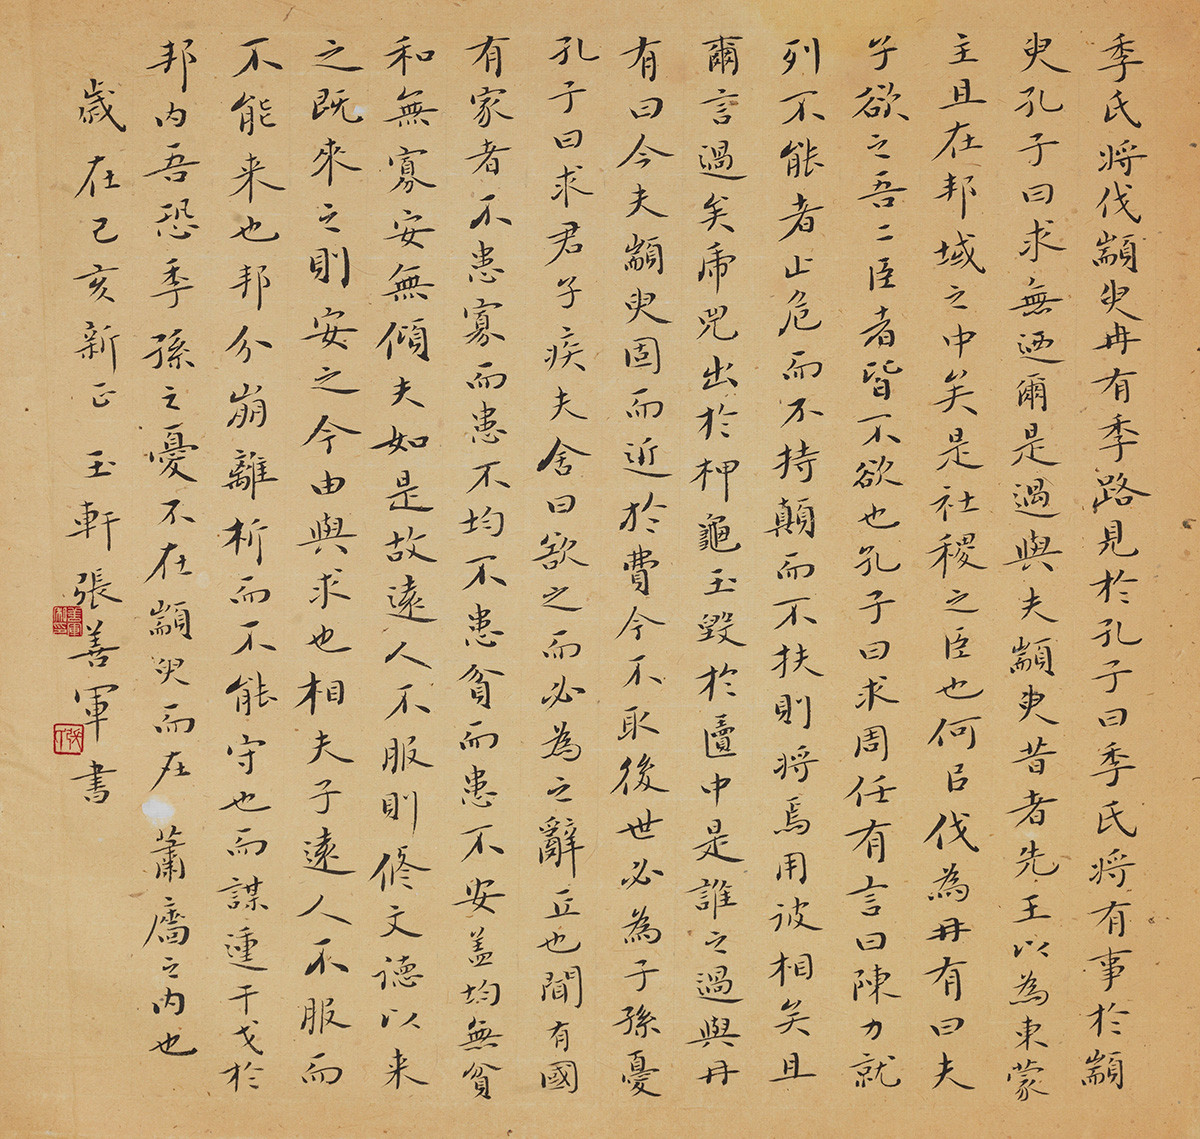 季氏将伐顓臾冉有季路見於孔子曰季氏将有事於顓
臾孔子曰求無迺爾是過與夫顓臾昔者先王以為東蒙
主且在邦域之中矣是社稷之臣也何㠯伐為冉有曰夫
子欲之吾二臣者皆不欲也孔子曰求周任有言曰陳力就
列不能者止危而不持顛而不扶則将焉用彼相矣且
爾言過矣虎兕出於柙龜玉毀於匵中是誰之過與冉
有曰今夫顓臾固而近於費今不取後世必為子孫憂
孔子曰求君子疾夫舍曰欲之而必為之辭丘也聞有國
有家者不患寡而患不均不患貧而患不安盖均無貧
和無寡安無傾夫如是故遠人不服則修文德以来
之既來之則安之今由與求也相夫子遠人不服而
不能来也邦分崩離析而不能守也而謀動干戈於
邦内吾恐季孫之憂不在顓臾而在蕭廧之内也
歲在己亥新正玉軒張善軍書